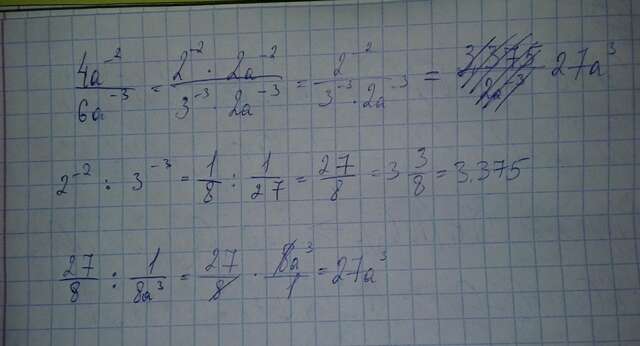 4a⁻²/6a⁻³ = 2⁻² · 2a⁻²/3⁻³ · 2a⁻³ = 2⁻²/3⁻³ · 2a⁻³ = 27a³
2⁻² : 3⁻³ = 1/8 : 1/27 = 27/8 = 3 3/8 = 3.375
27/8 : 1/8a³ = 27/8 · 8a³/1 = 27a³